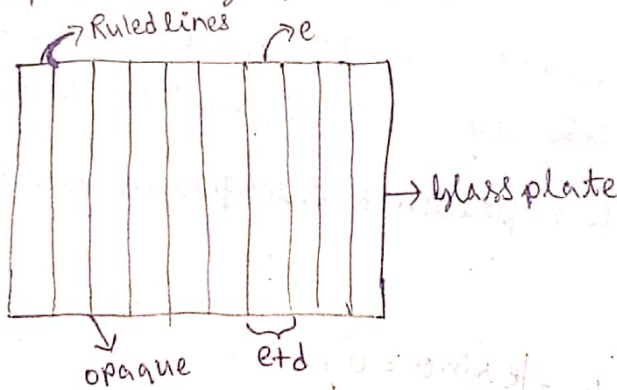 Ruled lines
e
Glass plate
opaque
e+d